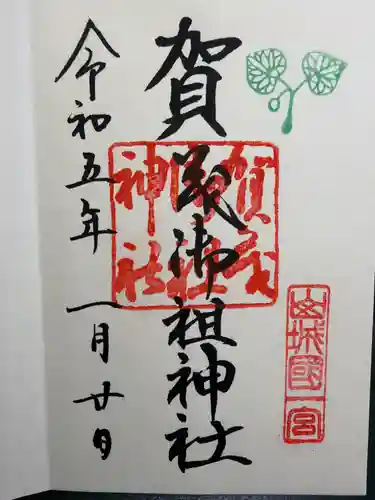 山城國一宮
賀茂御祖神社
賀茂御祖神社
令和五年一月廿日